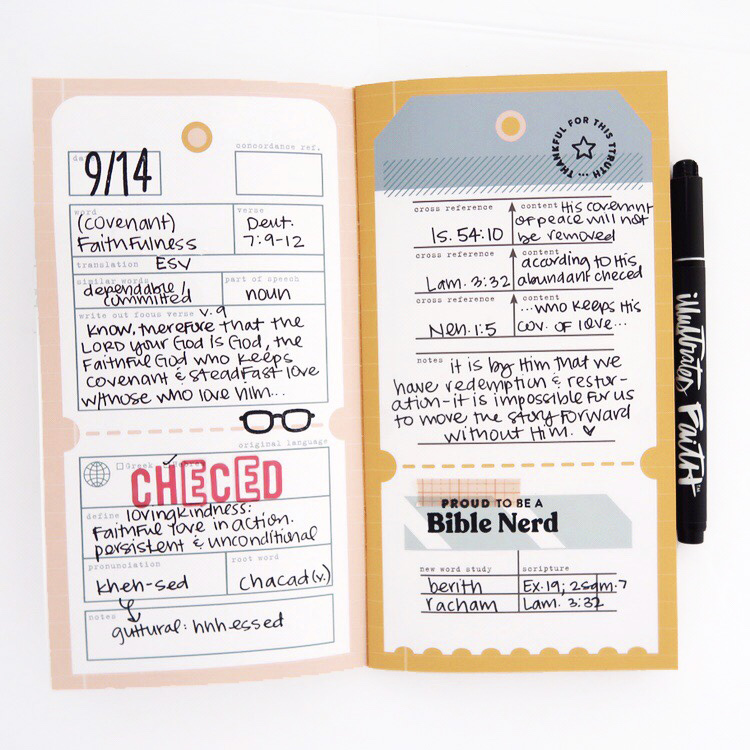 date
9/14
concordance ref.
word
(covenant)
Faithfulness
verse
Deut.
7:9-12
translation ESV
similar words
dependable /
committed
part of speech
noun
write out focus verse v. 9
Know, therefore that the
LORD your God is God, the
Faithful God who keeps
covenant & steadfast love
w/those who love him...
original language
Greek
CHECED
define lovingkindness:
Faithful love in action.
persistent & unconditional
pronunciation
kheh-sed
root word
chacad (v.)
notes
guttural: hhh essed
THANKFUL FOR THIS TTRUTH ...
cross reference
Is. 54:10
content His covenant
of peace will not
be removed
cross reference
Lam. 3:32
content
according to His
abundant checed
cross reference
Neh. 1:5
content
...who keeps His
cov. of love...
notes it is by Him that we
have redemption & restor-
ation-it is impossible for us
to move the story forward
without Him.
PROUD TO BE A
Bible Nerd
new word study
scripture
berith Ex. 19; 2 Sam. 7
racham Lam. 3:32
illustrated Faith™